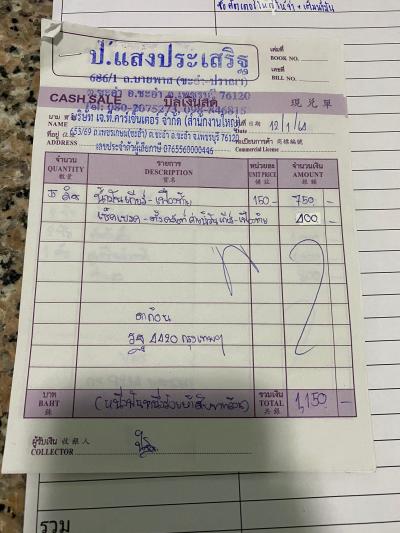 ซื้อ
ป.แสงประเสริฐ
686/1 ถ.บายพาส (ชะอำ-ปราณฯ)
อ.ชะอำ จ.เพชรบุรี 76120
เล่มที่
BOOK NO.
เลขที่
BILL NO.
CASH SALE บิลเงินสด 現兌單
นาม
NAME
บริษัท เจ.ที.คาร์เซ็นเตอร์ จำกัด (สำนักงานใหญ่)
วันที่ 日期 12/1/68
Date
ที่อยู่
653/69 ถ.เพชรเกษม(ชะอำ) ต.ชะอำ อ.ชะอำ จ.เพชรบุรี 76120
ทะเบียนการค้า 商標編號
Commercial License
เลขประจำตัวผู้เสียภาษี 0765560000446
จำนวน รายการ หน่วยละ จำนวนเงิน
QUANTITY DESCRIPTION UNIT PRICE AMOUNT
數量 貨名
5 ลิตร น้ำมันเกียร์-เฟืองท้าย 150- 750 -
400 -
4420 กรุงเทพฯ
บาท
BAHT
銖
(หนึ่งพันหนึ่งร้อยห้าสิบบาทถ้วน)
รวมเงิน
TOTAL
共銀
1,150 -
ผู้รับเงิน 收銀人
COLLECTOR
รวม